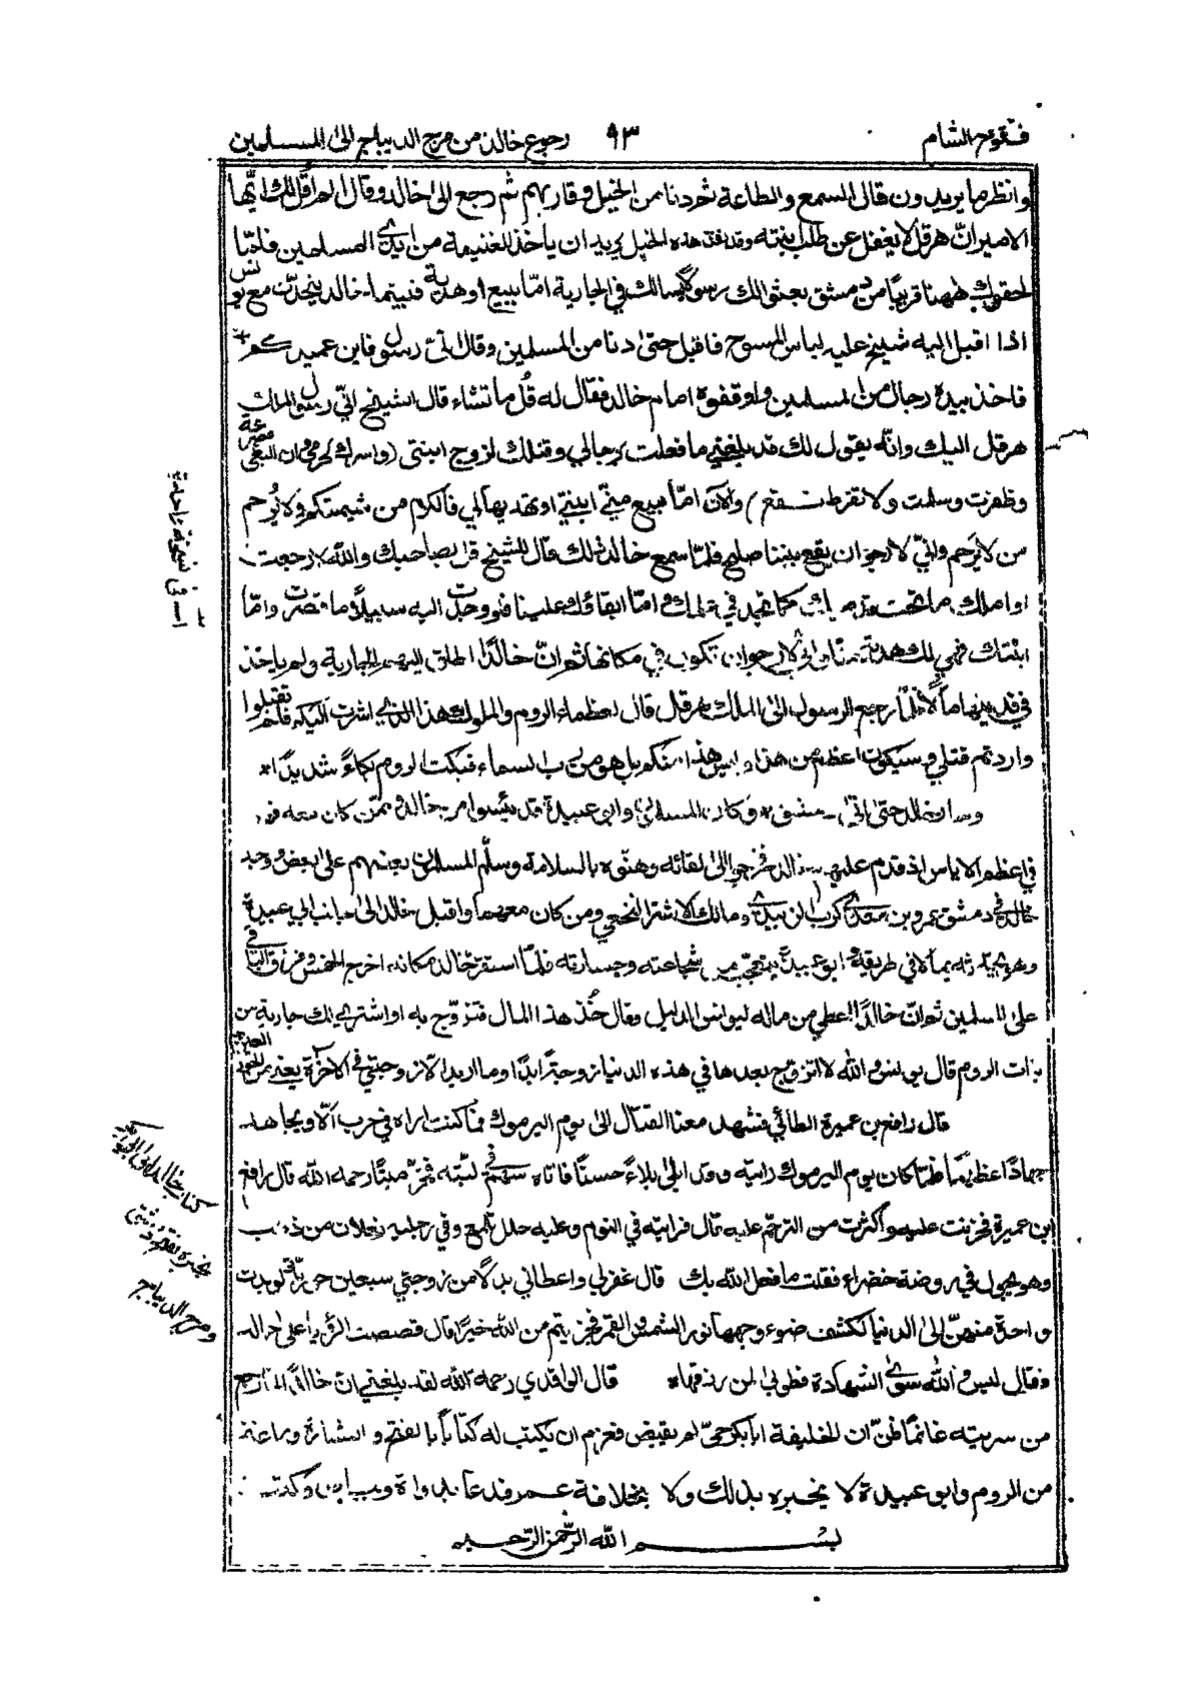 فتوح الشام ٩٣ رجوع خالد من مرج الديباج الى المسلمين
وانظر ما يريدون قال السمع والطاعة ثم دنا من الخيل وقاربهم ثم رجع الى خالد وقال الم اقل لك ايها
الامير ان هرقل لا يغفل عن طلب ابنته وقد هذه الخيل يريد ان ياخذ الغنيمة من ايدى المسلمين فلما
لحقوك ههنا قريبا من دمشق بعثوا لك رسولا يسالك في الجارية اما ببيع او هدية فبينما خالد يتحدث مع يونس
اذا اقبل اليه شيخ عليه لباس المسوح فاقبل حتى دنا من المسلمين وقال انى رسول فاين عميدكم
فاخذ بيده رجال من المسلمين واوقفوه امام خالد فقال له قل ما تشاء قال الشيخ انى رسول الملك
هرقل اليك وانه يقول لك قد بلغنى ما فعلت برجالي وقتلك لزوج ابنتى (واسرك لحرمى وان البغى مصرعة
وظفرت وسلمت ولا تفرط ) والآن اما ببيع منى ابنتي او تهديها لي فالكرم من شيمتكم ولا يرحم
من لا يرحم وانى لارجو ان يقع بيننا صلح فلما سمع خالد ذلك قال للشيخ قل لصاحبك والله لا رجعت
او املك ما تحت كما تجد في علمك واما ابقائك علينا فلو وجدت اليه سبيلا ما قصرت واما
ابنتك فهي لك هدية منا وانى لارجو ان تكون في مكانها ثم ان خالدا اطلق اليهم الجارية ولم ياخذ
في فديتها مالا فلما رجع الرسول الى الملك هرقل قال لعظماء الروم والملوك هذا الذى اشرت اليكم فلم تقبلوا
واردتم قتلي وسيكون اعظم من هذا وليس هذا منكم بل هو من رب السماء فبكت الروم بكاءً شديدًا
وسار خالد حتى اتى دمشق وكان المسلمون وابو عبيدة قد يئسوا من خالد وممن كان معه فهم
في اعظم الاياس اذ قدم عليهم خالد فخرجوا الى لقائه وهنوه بالسلامة وسلم المسلمون بعضهم على بعض ووجد
خالد فى دمشق عمرو بن معدى كرب الزبيدى ومالك الاشتر النخعي ومن كان معهما واقبل خالد الى جانب ابي عبيدة
وهو يحدثه بما لاقى في طريقه وابو عبيدة يتعجب من شجاعته وجسارته فلما استقر خالد مكانه اخرج الخمس وفرق الباقى
على المسلمين ثم ان خالدا اعطى من ماله ليونس الدليل وقال خذ هذا المال فتزوج به او اشترى لك جارية من
بنات الروم قال يونس والله لا اتزوج بعدها في هذه الدنيا زوجة ابدا وما اريد الا زوجتي فى الآخرة يعنى من الحور العين
قال رافع بن عميرة الطائي فشهد معنا القتال الى يوم اليرموك فما كنت اراه في حرب الا ويجاهد
جهادًا عظيمًا فلما كان يوم اليرموك رايته وقد ابلى بلاءً حسنًا فاتاه سهم فى لبته فخر ميتا رحمه الله قال رافع
ابن عميرة فحزنت عليه واكثرت من الترحم عليه قال فرايته في النوم وعليه حلل تلمع وفي رجليه نعلان من ذهب
وهو يجول في روضة خضراء فقلت ما فعل الله بك قال غفر لي واعطاني بدلا من زوجتي سبعين حوراء لو بدت
واحدة منهن الى الدنيا لكشف ضوء وجهها نور الشمس والقمر فجزيتم من الله خيرًا قال فقصصت الرؤيا على خالد
فقال ليس والله سوى الشهادة فطوبى لمن رزقها قال الواقدي رحمة الله لقد بلغنى ان خالدا لما رجع
من سريته غانمًا ظن ان الخليفة ابابكر حى لم يقبض فعزم ان يكتب له كتابا بالفتح والبشارة وما غنم
من الروم وابو عبيدة لا يخبره بذلك ولا بخلافة عمر فدعا بدواة وبياض وكتب
بسم الله الرحمن الرحيم
كتاب خالد الى ابى بكر
يخبره بفتح دمشق
ومرج الديباج